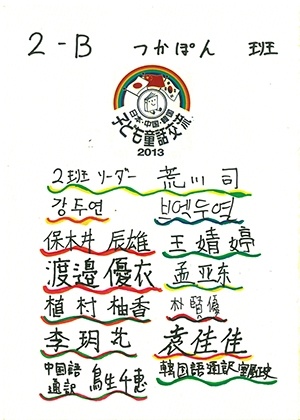 2-B つかぽん 班
日本・中国・韓国
子ども童話交流
2013
2班 リーダー 荒川 司
강두연
保木井 辰雄 王婧婷
渡邉 優衣 孟亚东
植村 柚香 朴賢優
李玥 袁佳佳
中国語 韓国語通訳
通訳 鳥生千恵